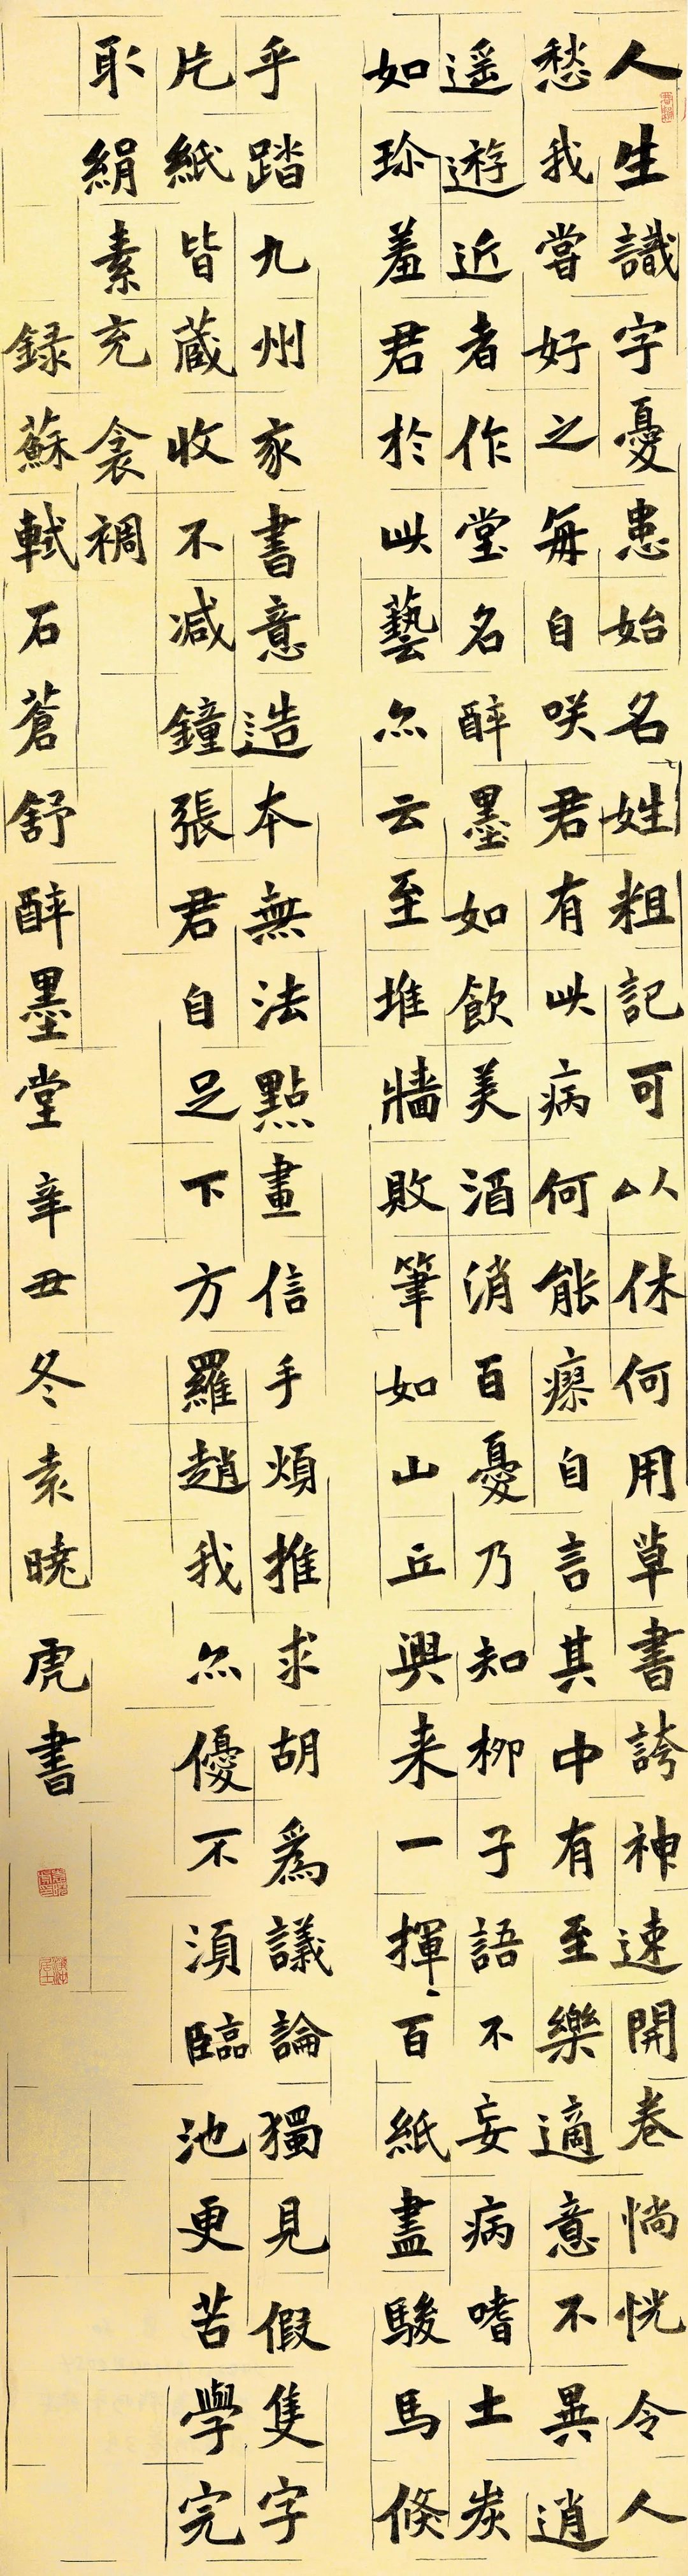 人生識字憂患始名姓粗記可以休何用草書誇神速開卷惝恍令人
愁我嘗好之每自咲君有此病何能瘳自言其中有至樂適意不異逍
遥遊近者作堂名醉墨如飲美酒消百憂乃知柳子語不妄病嗜土炭
如珎羞君於此藝亦云至堆牆敗筆如山丘興来一揮百紙盡駿馬倏
乎踏九州家書意造本無法點畫信手煩推求胡為議論獨見假隻字
片紙皆蔵收不减鐘張君自足下方羅趙我亦優不湏臨池更苦學完
耴絹素充衾裯
録蘇軾石蒼舒醉墨堂辛丑冬袁曉虎書